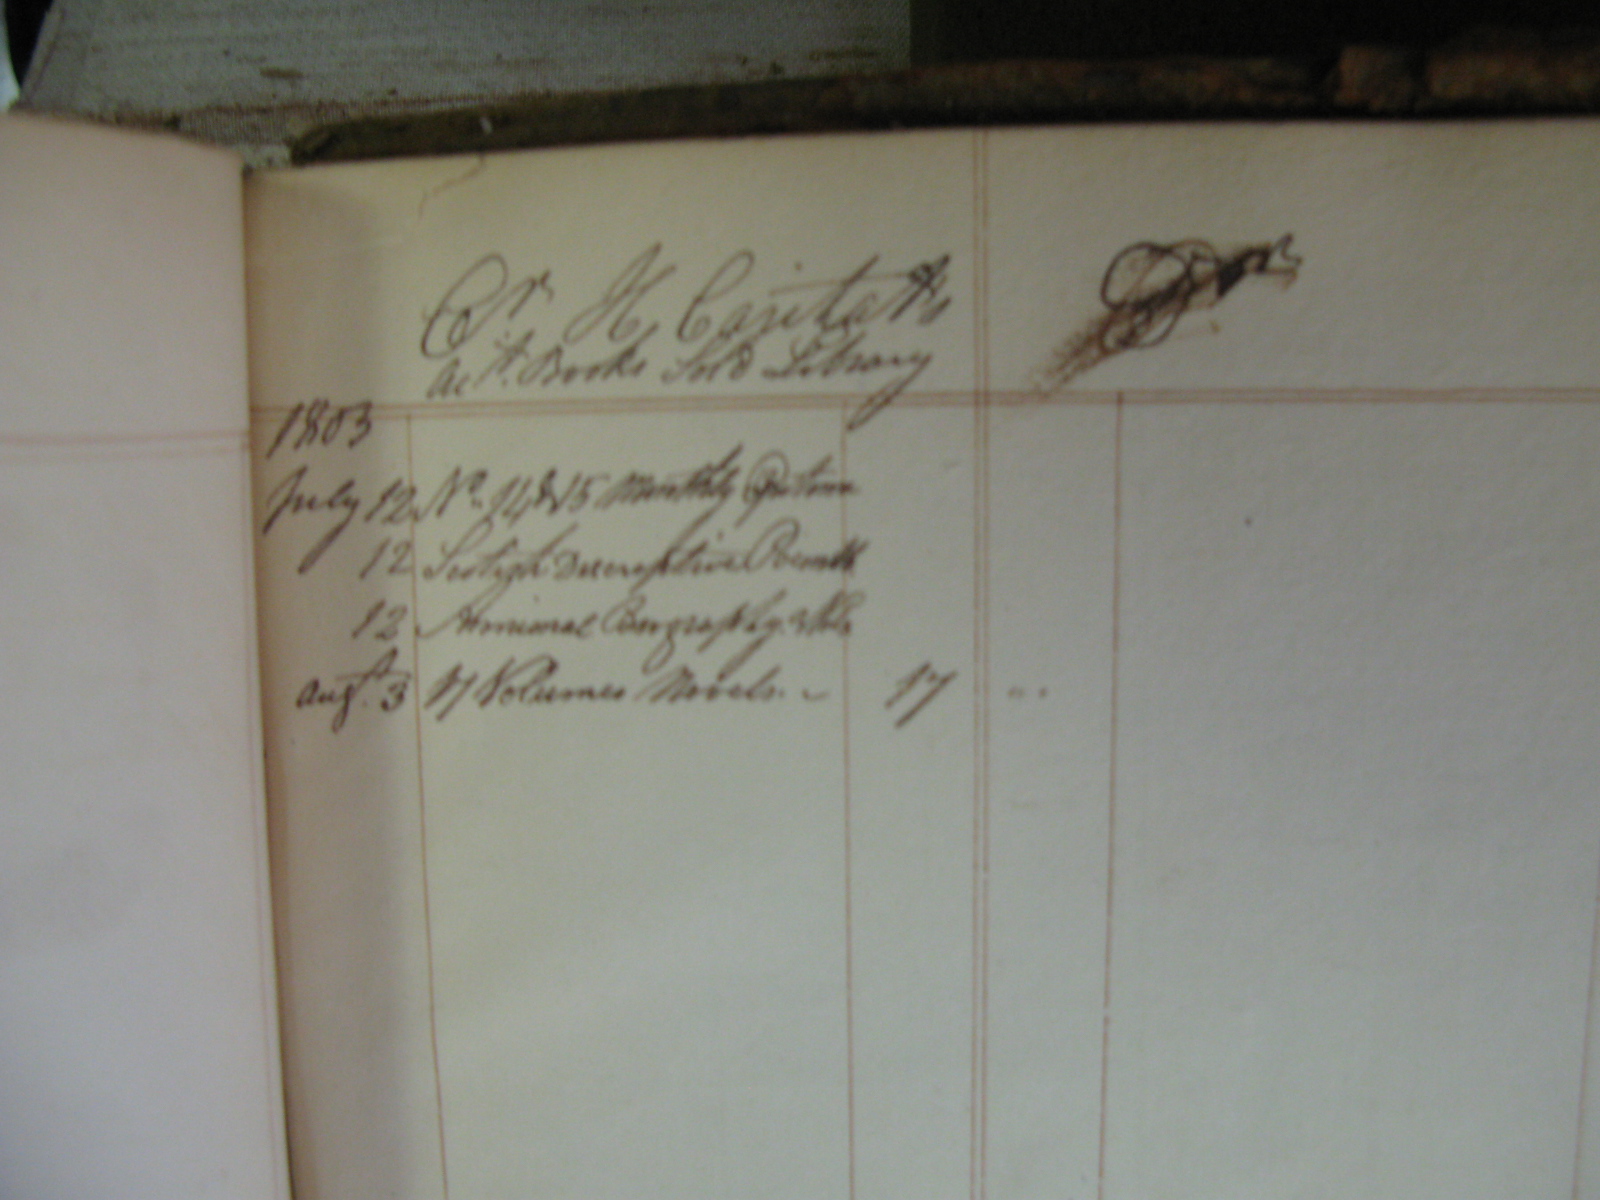 Cr H, Caritat's
Act. Books Sold Library
1803
July 12 No. 14 & 15 Monthly
12 Scotish Descriptive Poems
12 Animal Biography. 3 Vols
Augt. 3 17 Volumes Novels. 17 ..